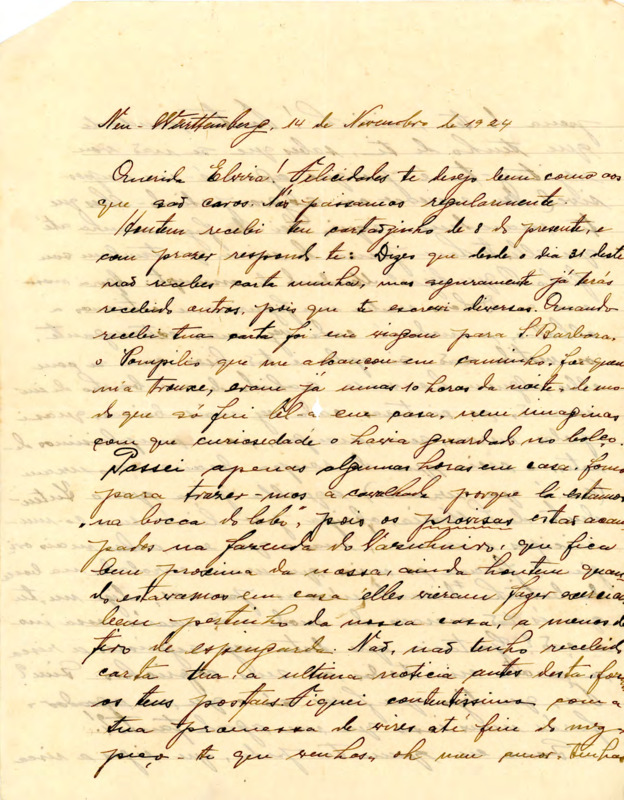 Neu-Württemberg, 14 de Novembro de 1924
Querida Elvira! Felicidades te desejo bem como aos
que são caros. Nós passamos regularmente.
Hontem recebi teu cartãozinho de 8 do presente, e
com prazer respondo-te: Dizes que desde o dia 31 deste
não recebes carta minha, mas seguramente já terás
recebido outras, pois que te escrevi diversas. Quando
recebi tua carta foi em viagem para S. Barbara,
o Pompilio que me alcançou em caminho, foi quem
m'a trouxe, eram já umas 10 horas da noite, de mo-
do que só fui lêl-a em casa, nem imaginas
com que curiosidade o havia guardado no bolço.
Passei apenas algumas horas em casa, fomos
para trazer-mos a cavalhada porque la estamos
"na bocca do lobo", pois os provisas estão acam
pados na fazenda do que fica
bem proxima da nossa, ainda hontem quan
do estavamos em casa elles vieram fazer exercicio
bem pertinho da nossa casa, a menos de
tiro de espingarda. Não, não tenho recebido
carta tua, a ultima noticia antes desta, foram
os teus postaes. Fiquei contentissimo com a
tua promessa de vires até fim do mez,
peço-te que venhas, oh meu amor. Tenhas